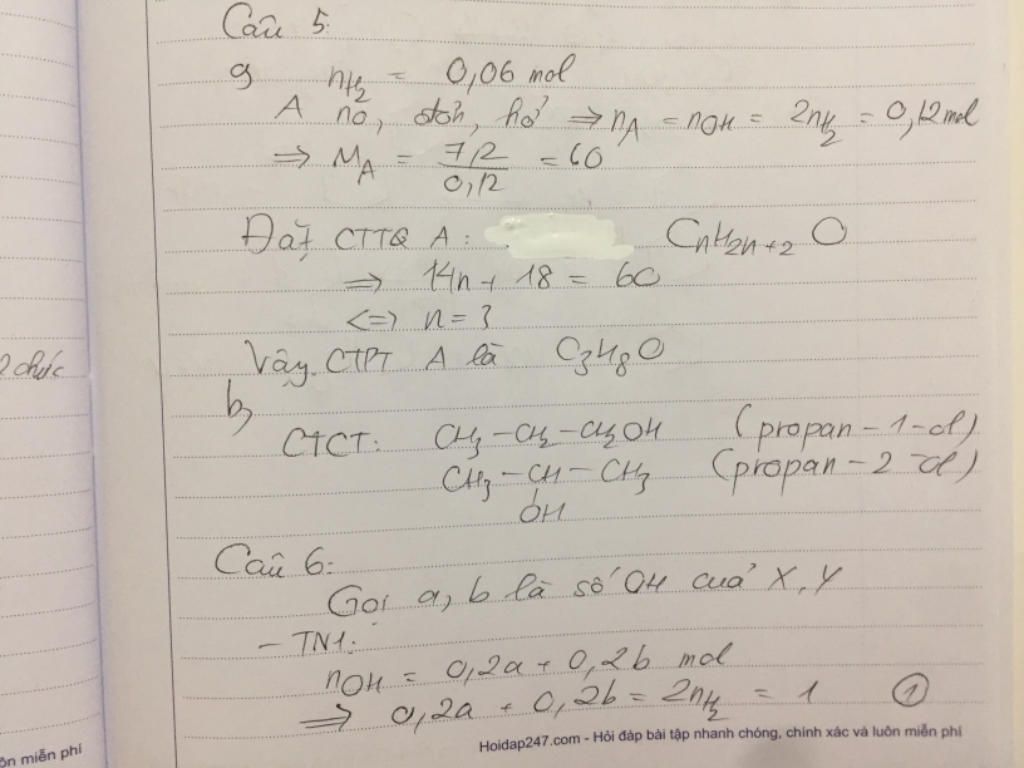 Câu 5:
a) nH2 = 0,06 mol
A no, đơn, hở => nA = nOH = 2nH2 = 0,12 mol
=> MA = 7,2 / 0,12 = 60
Đặt CTTQ A: CnH2n+2O
=> 14n + 18 = 60
<=> n = 3
Vậy CTPT A là C3H8O
2 chức
b)
CTCT: CH3-CH2-CH2OH (propan-1-ol)
CH3-CH-CH3 (propan-2-ol)
OH
Câu 6:
Gọi a, b là số OH của X, Y
- TN1:
nOH = 0,2a + 0,2b mol
=> 0,2a + 0,2b = 2nH2 = 1 ①
Hoidap247.com - Hỏi đáp bài tập nhanh chóng, chính xác và luôn miễn phí
ôn miễn phí